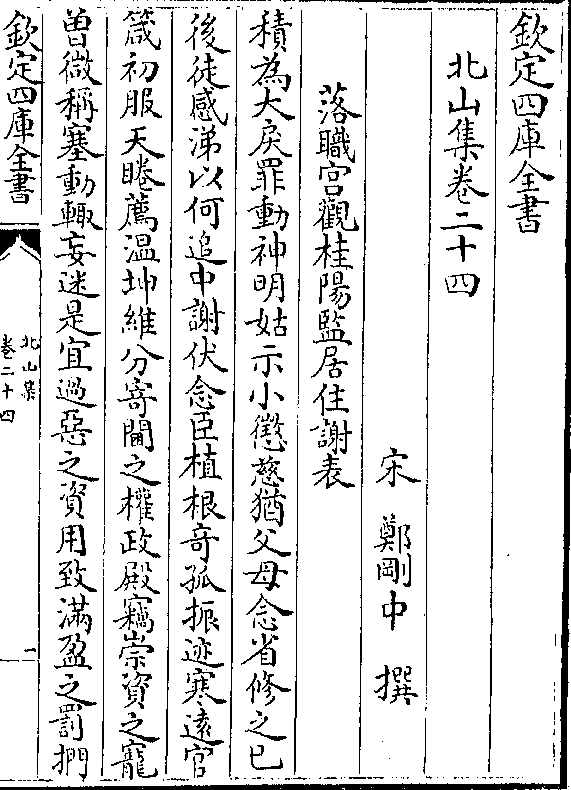 欽定四庫全書
北山集卷二十四
宋 鄭剛中 撰
落職宫觀桂陽監居住謝表
積為大戾罪動神明姑示小懲慈猶父母念省修之已
後徒感涕以何追中謝伏念臣植根竒孤振迹寒逺官
箴初服天睠薦温坤維分寄閫之權政殿竊崇資之寵
曽微稱塞動輙妄迷是宜過惡之資用致滿盈之罰捫
欽定四庫全書
北山集
卷二十四
一